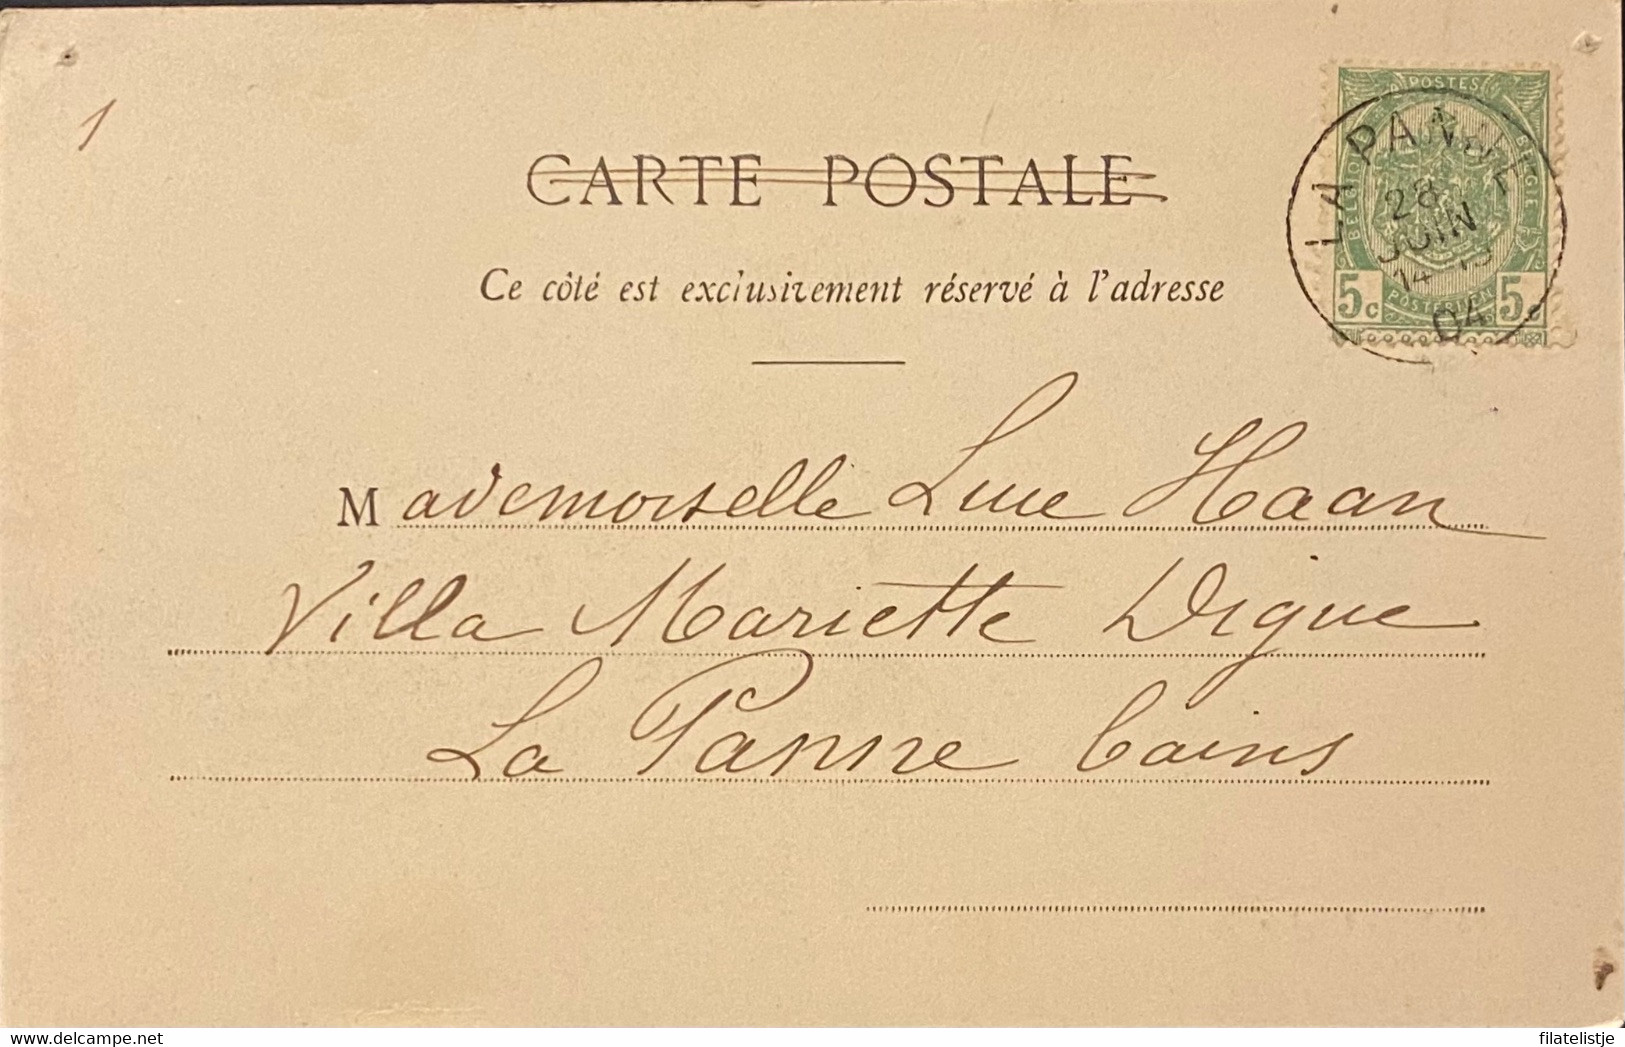 1
POSTES
BELGIQUE BELGIE
POSTERIJEN
5c 5c
LA PANNE
28
JUIN
04
CARTE POSTALE
Ce côté est exclusivement réservé à l'adresse
Mademoiselle Luce Haan
Villa Mariette Digue
La Panne bains
filatelistje